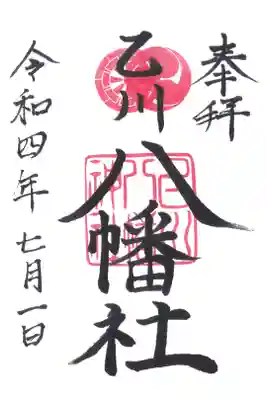 奉拝
乙川
八幡社
令和四年 七月一日